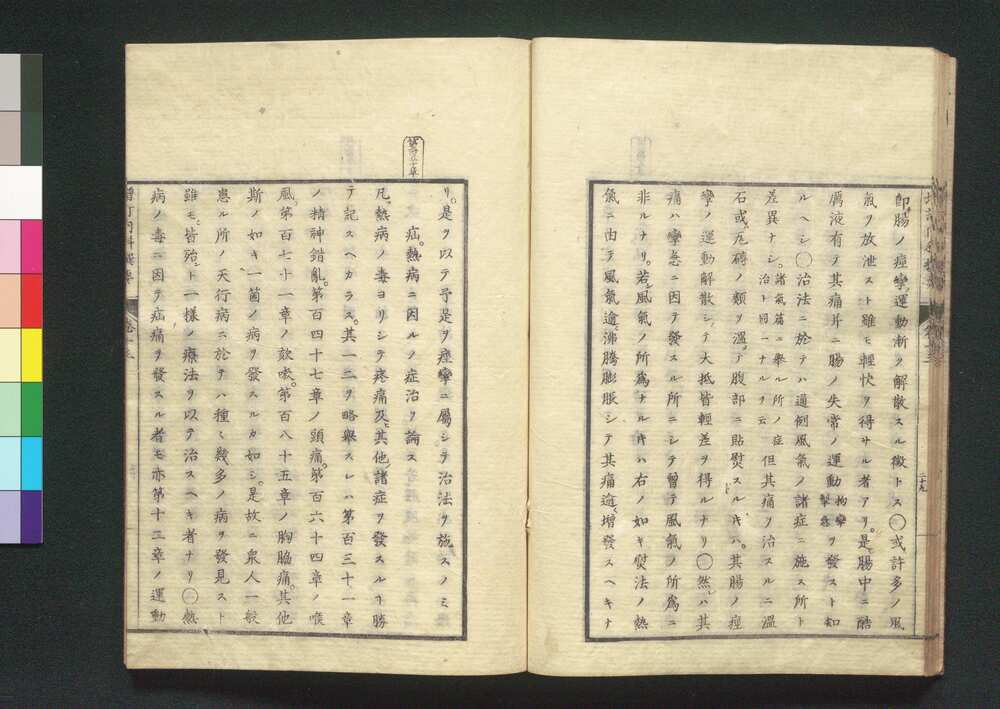 即腸ノ痙攣運動漸ク解散スルノ徴トス〇或許多ノ風
氣ヲ放泄スト雖モ輕快ヲ得サル者アリ。是腸中ニ酷
厲液有テ其痛并ニ腸ノ失常ノ運動拘攣掣急ヲ發スト知
ルヘシ〇治法ニ於テハ適例風氣ノ諸症ニ施ス所ト
差異ナシ。諸氣篇ニ擧ル所ノ症治ト同一ナルヲ云但其痛ヲ治スルニ温
石或ハ瓦磚ノ類ヲ温テ腹部ニ貼熨スルキハ。其腸ノ痙
攣ノ運動解散シテ大抵皆輕差ヲ得ルナリ〇然ハ其
痛ハ攣急ニ因テ發スル所ニシテ曾テ風氣ノ所爲ニ
非ルナリ。若風氣ノ所爲ナルキハ右ノ如キ熨法ノ熱
氣ニ由テ風氣逾沸騰膨脹シテ其痛逾増發スヘキナ
二十九
リ。是ヲ以テ予是ヲ痙攣ニ屬シテ治法ヲ施スノミ
第百九十章
疝。熱病ニ因ルノ症治ヲ論ス
凡熱病ノ毒ヨリシテ疼痛及其他諸症ヲ發スルヿ勝
テ記スヘカラス。其一二ヲ略擧スレハ第百三十一章
ノ精神錯亂。第百四十七章ノ頭痛。第百六十四章ノ喉
風。第百七十一章ノ欬嗽。第百八十五章ノ胸脇痛。其他
斯ノ如キ一箇ノ病ヲ發スルカ如シ。是故ニ衆人一般
患ル所ノ天行病ニ於テハ種々幾多ノ病ヲ發見スト
雖モ。皆殆ト一樣ノ療法ヲ以テ治スヘキ者ナリ〇熱
病ノ毒ニ因テ疝痛ヲ發スル者モ亦第十二章ノ運動
増訂内科撰要 卷十三